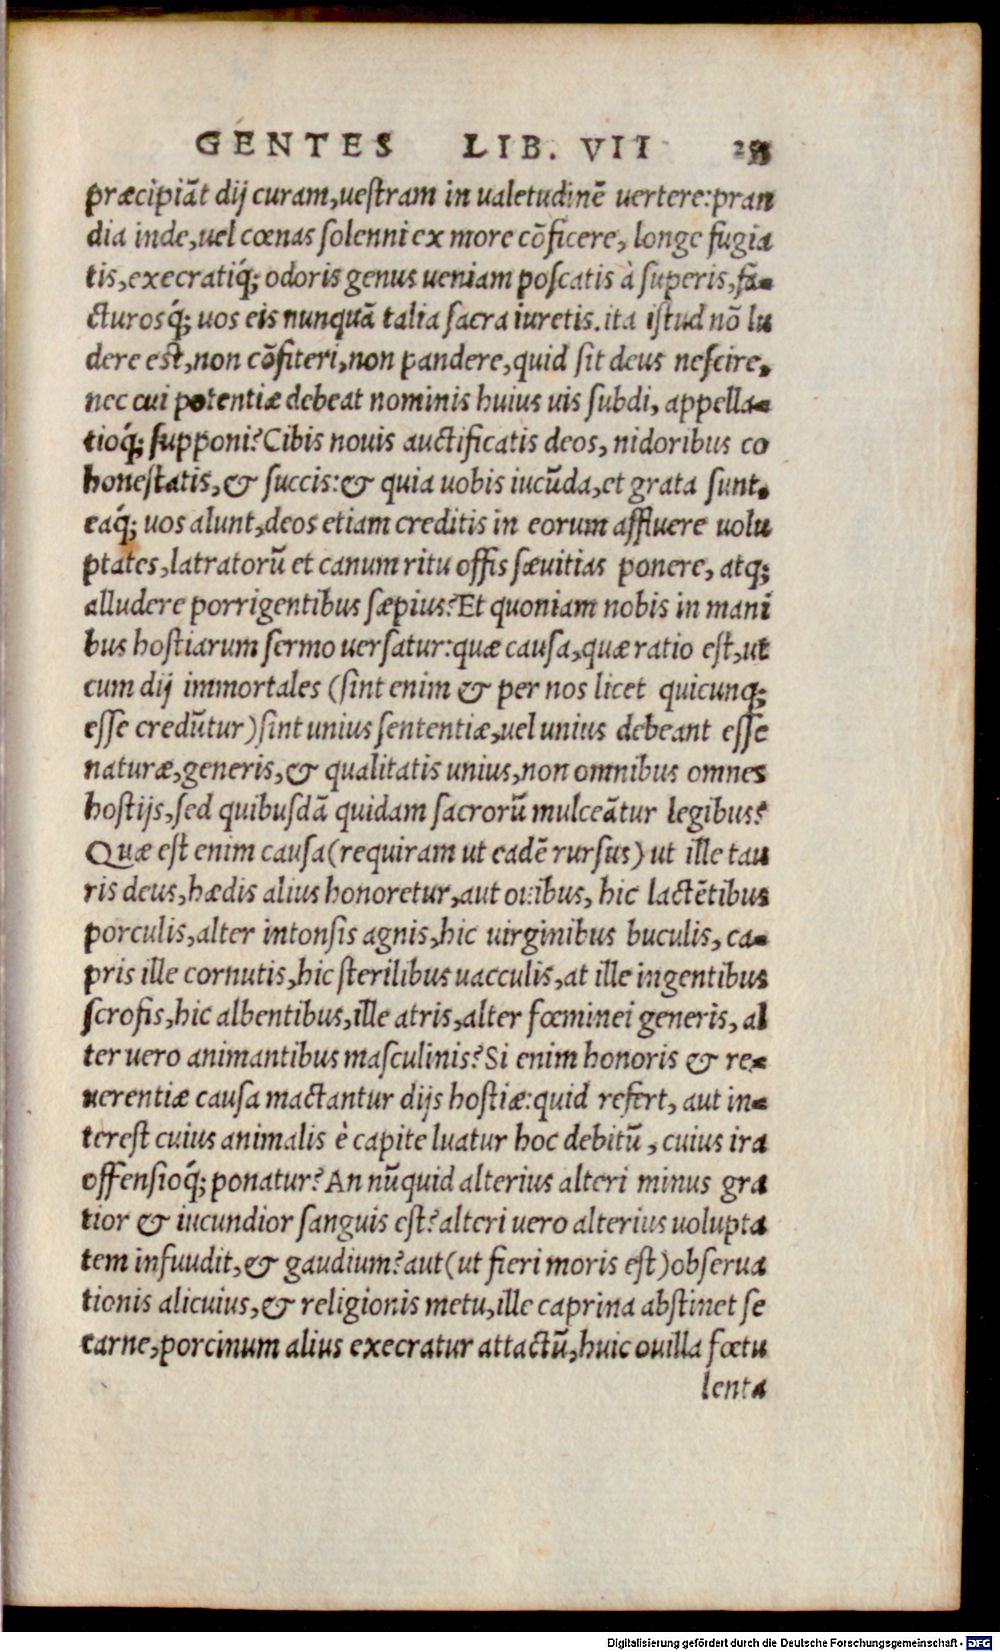 GENTES LIB. VII
præcipiāt dij curam, uestram in ualetudinē uertere: pran
dia inde, uel cœnas solenni ex more cōficere, longe fugia
tis, execratiq́; odoris genus ueniam poscatis à superis, fa-
cturosq́; uos eis nunquā talia sacra iuretis. ita istud nō lu
dere est, non cōfiteri, non pandere, quid sit deus nescire,
nec cui potentiæ debeat nominis huius uis subdi, appella-
tioq́; supponi? Cibis nouis auctificatis deos, nidoribus co
honestatis, & succis: & quia uobis iucūda, et grata sunt,
eaq́; uos alunt, deos etiam creditis in eorum affluere uolu
ptates, latratorū et canum ritu offis sæuitias ponere, atq;
alludere porrigentibus sæpius? Et quoniam nobis in mani
bus hostiarum sermo uersatur: quæ causa, quæ ratio est, ut
cum dij immortales (sint enim & per nos licet quicunq;
esse credūtur) sint unius sententiæ, uel unius debeant esse
naturæ, generis, & qualitatis unius, non omnibus omnes
hostijs, sed quibusdā quidam sacrorū mulceātur legibus?
Quæ est enim causa (requiram ut eadē rursus) ut ille tau
ris deus, hædis alius honoretur, aut ouibus, hic lactētibus
porculis, alter intonsis agnis, hic uirginibus buculis, ca-
pris ille cornutis, hic sterilibus uacculis, at ille ingentibus
scrofis, hic albentibus, ille atris, alter fœminei generis, al
ter uero animantibus masculinis? Si enim honoris & re-
uerentiæ causa mactantur dijs hostiæ: quid refert, aut in-
terest cuius animalis è capite luatur hoc debitū, cuius ira
offensioq́; ponatur? An nūquid alterius alteri minus gra
tior & iucundior sanguis est? alteri uero alterius uolupta
tem infuudit, & gaudium? aut (ut fieri moris est) obserua
tionis alicuius, & religionis metu, ille caprina abstinet se
carne, porcinum alius execratur attactū, huic ouilla fœtu
lenta
Digitalisierung gefördert durch die Deutsche Forschungsgemeinschaft - DFG